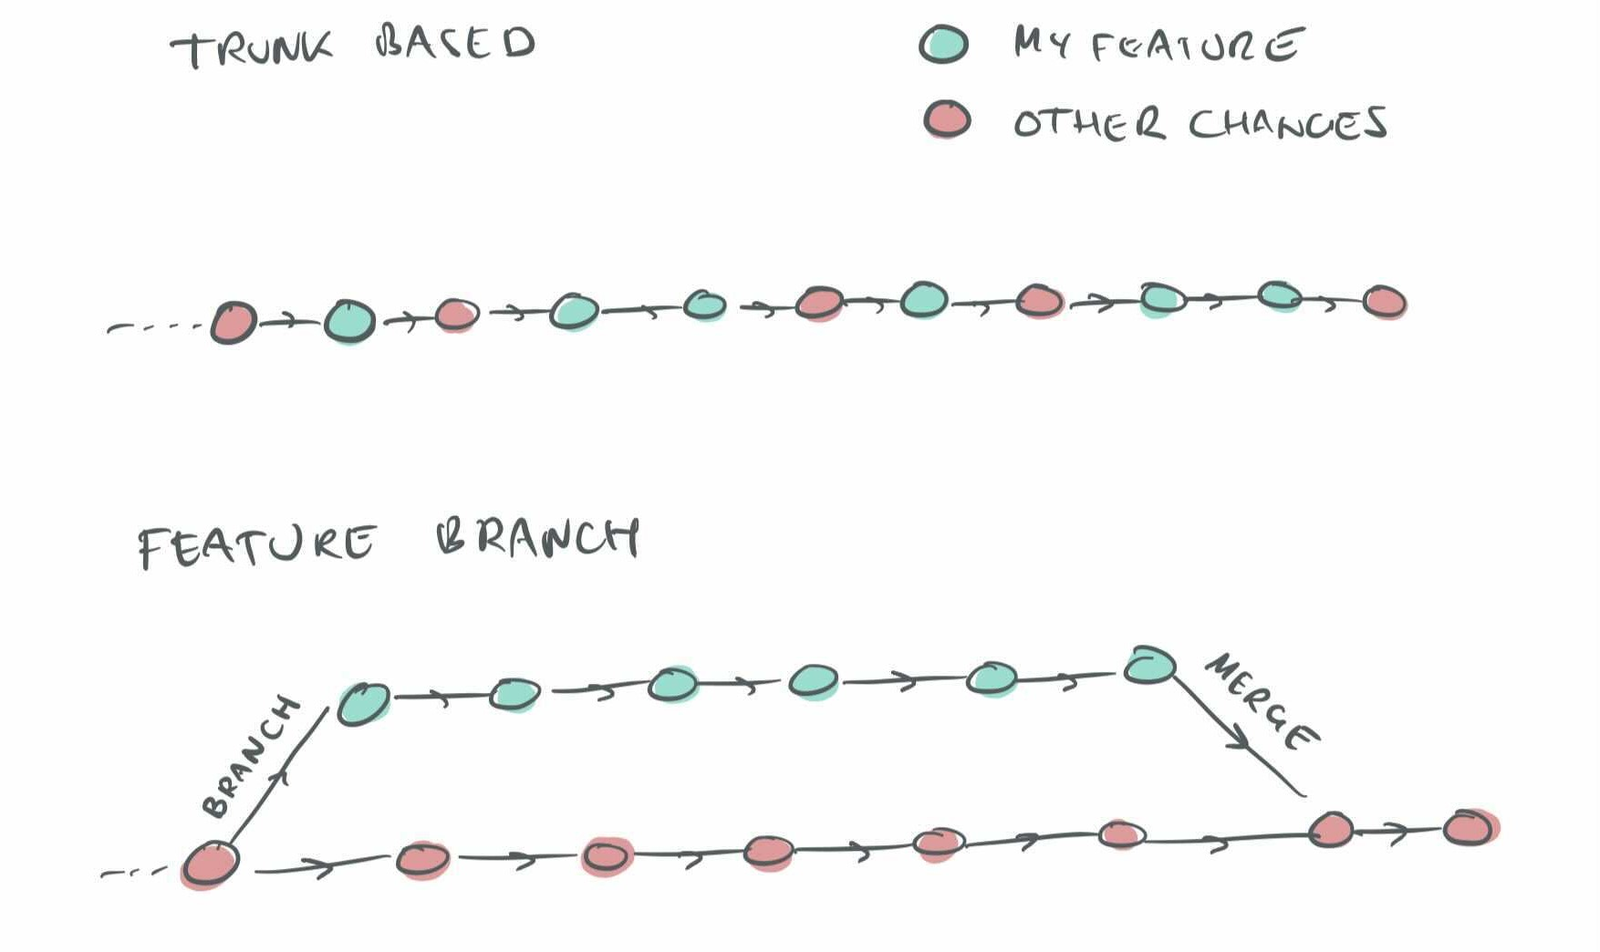 TRUNK BASED
MY FEATURE
OTHER CHANGES
FEATURE BRANCH
BRANCH
MERGE